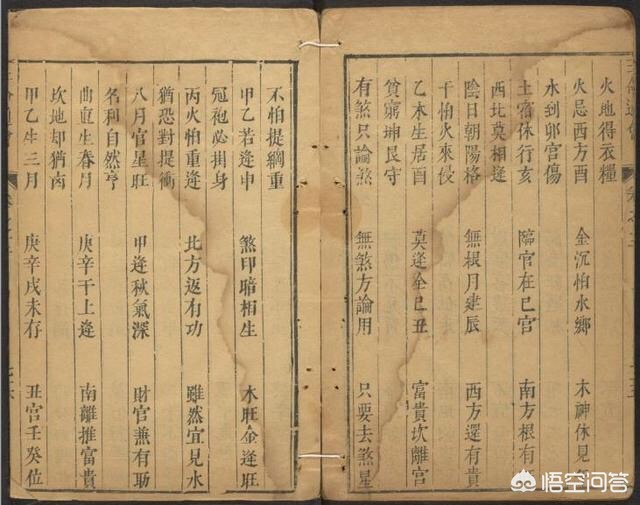 火地得衣糧
火忌西方酉 金沉怕水鄉 木神休見
水到卯宮傷
土宿休行亥 臨官在巳宮 南方根有
西北莫相逢
陰日朝陽格 無根月建辰 西方還有貴
干怕火來侵
乙木生居酉 莫逢全巳丑 富貴坎離宮
貧窮坤艮守
有煞只論煞 無煞方論用 只要去煞星
不怕提綱重
甲乙若逢申 煞印暗相生 木旺金逢旺
冠袍必掛身
丙火怕重逢 北方返有功 雖然宜見水
猶恐對提衝
八月官星旺 甲逢秋氣深 財官兼有助
名利自然亨
曲直生春月 庚辛干上逢 南離推富貴
坎地却猶凶
甲乙生三月 庚辛戌未存 丑宮壬癸位
悟空问答